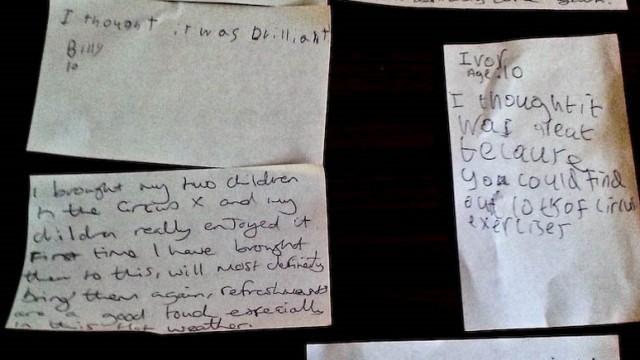 I thought it was brilliant
Billy
10
I brought my two children
to the Circus X and my
children really enjoyed it
First time I have brought
them to this, will most definitely
bring them again, refreshments
are a good touch especially
in this Hot weather.
Ivor
Age 10
I thought it
was great
because
you could find
out lots of circus
exercises